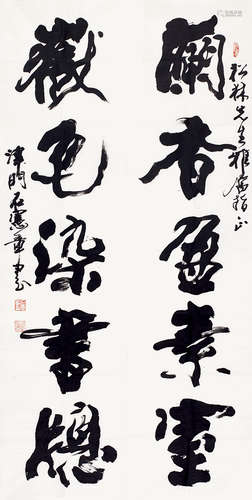 松林先生雅屬指正
蘭香盈素室
色染書牕
津門石憲章書